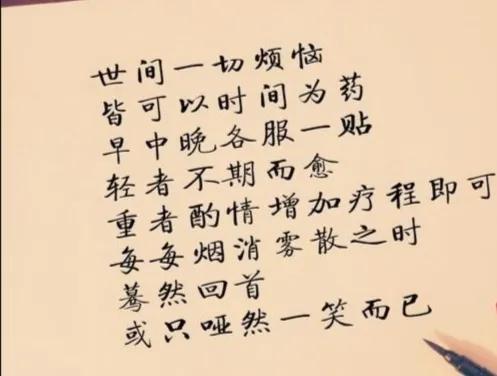 世间一切烦恼
皆可以时间为药
早中晚各服一贴
轻者不期而愈
重者酌情增加疗程即可
每每烟消雾散之时
蓦然回首
或只哑然一笑而已